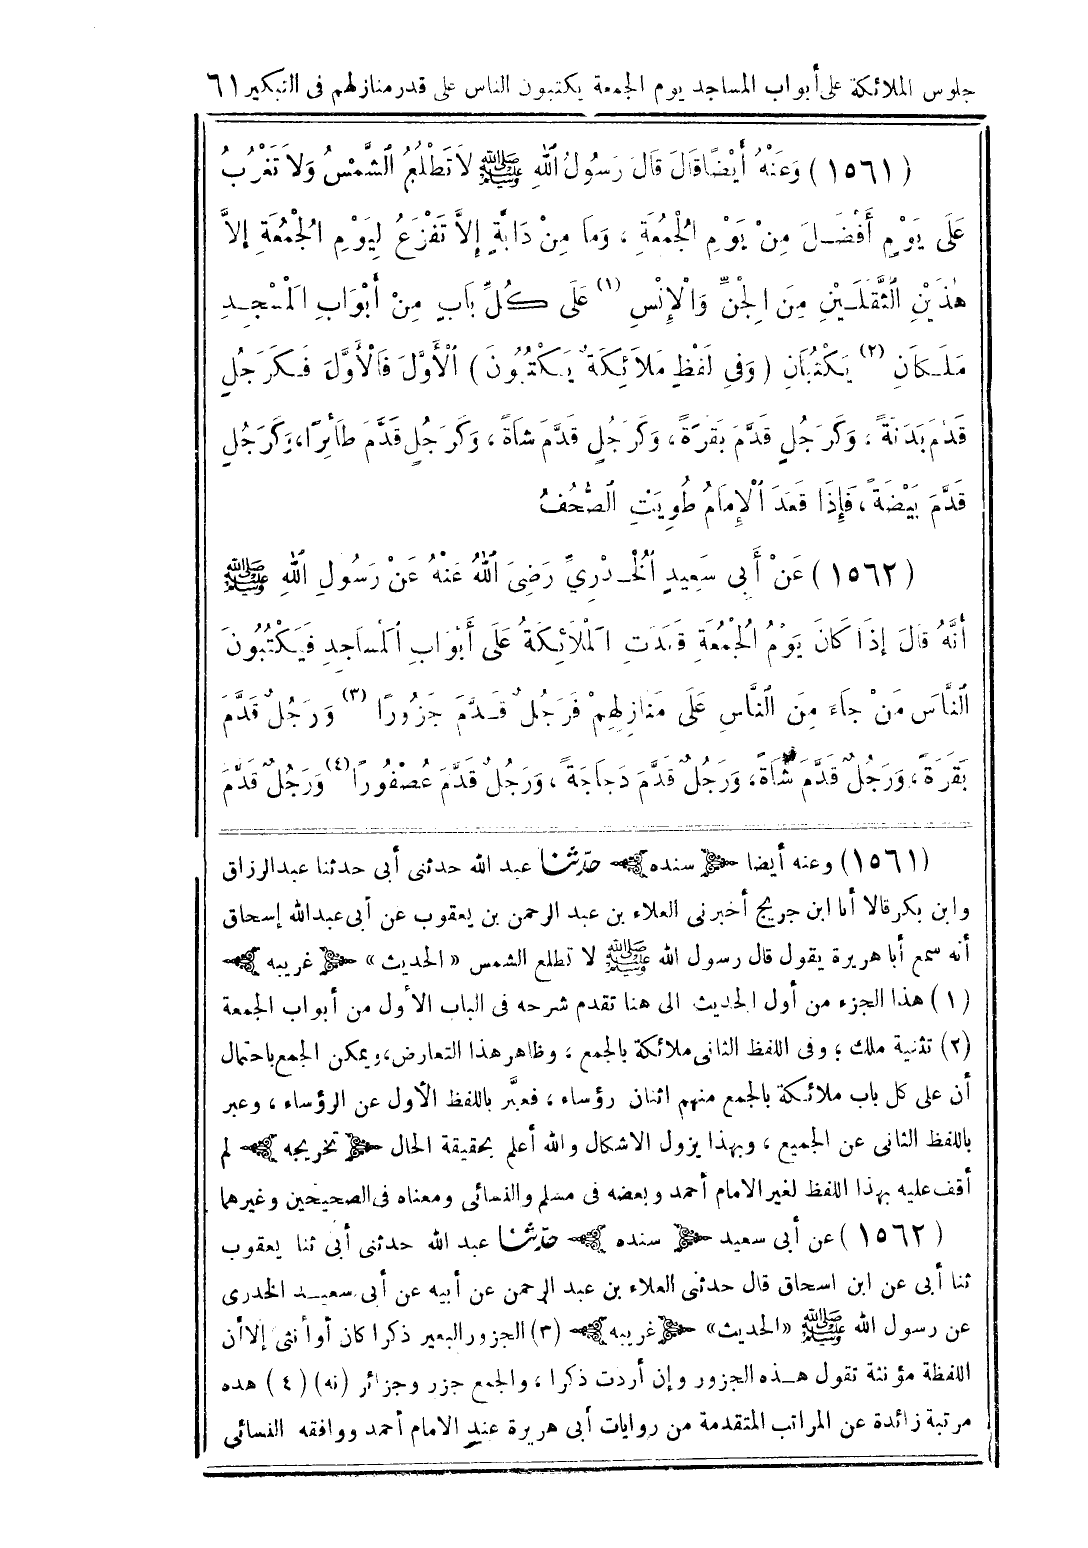 جلوس الملائكة على أبواب المساجد يوم الجمعة يكتبون الناس على قدر منازلهم فى التبكير ٦١
(١٥٦١) وَعَنْهُ أَيْضًا قَالَ قَالَ رَسُولُ اللهِ ﷺ لاَ تَطْلُعُ الشَّمْسُ وَلاَ تَغْرُبُ
عَلَى يَوْمٍ أَفْضَلَ مِنْ يَوْمِ الْجُمُعَةِ ، وَمَا مِنْ دَابَّةٍ إِلاَّ تَفْزَعُ لِيَوْمِ الْجُمُعَةِ إِلاَّ
هٰذَيْنِ الثَّقَلَيْنِ مِنَ الْجِنِّ وَالْإِنْسِ (١) عَلَى كُلِّ بَابٍ مِنْ أَبْوَابِ الْمَسْجِدِ
مَلَكَانِ (٢) يَكْتُبَانِ ( وَفِى لَفْظٍ مَلاَئِكَةٌ يَكْتُبُونَ ) الْأَوَّلَ فَالْأَوَّلَ فَكَرَجُلٍ
قَدَّمَ بَدَنَةً ، وَكَرَجُلٍ قَدَّمَ بَقَرَةً ، وَكَرَجُلٍ قَدَّمَ شَاةً ، وَكَرَجُلٍ قَدَّمَ طَائِرًا ، وَكَرَجُلٍ
قَدَّمَ بَيْضَةً ، فَإِذَا قَعَدَ الْإِمَامُ طُوِيَتِ الصُّحُفُ
(١٥٦٢) عَنْ أَبِى سَعِيدٍ الْخُدْرِيِّ رَضِىَ اللهُ عَنْهُ عَنْ رَسُولِ اللهِ ﷺ
أَنَّهُ قَالَ إِذَا كَانَ يَوْمُ الْجُمُعَةِ قَعَدَتِ الْمَلاَئِكَةُ عَلَى أَبْوَابِ الْمَسَاجِدِ فَيَكْتُبُونَ
النَّاسَ مَنْ جَاءَ مِنَ النَّاسِ عَلَى مَنَازِلِهِمْ فَرَجُلٌ قَدَّمَ جَزُورًا (٣) وَرَجُلٌ قَدَّمَ
بَقَرَةً ، وَرَجُلٌ قَدَّمَ شَاةً ، وَرَجُلٌ قَدَّمَ دَجَاجَةً ، وَرَجُلٌ قَدَّمَ عُصْفُورًا (٤) وَرَجُلٌ قَدَّمَ
(١٥٦١) وعنه أيضا سنده حدّثنا عبد الله حدثنى أبى حدثنا عبد الرزاق
وابن بكر قالا أنا ابن جريج أخبرنى العلاء بن عبد الرحمن بن يعقوب عن أبى عبد الله إسحاق
أنه سمع أبا هريرة يقول قال رسول الله ﷺ لا تطلع الشمس « الحديث » غريبه
(١) هذا الجزء من أول الحديث الى هنا تقدم شرحه فى الباب الأول من أبواب الجمعة
(٢) تثنية ملك ؛ وفى اللفظ الثانى ملائكة بالجمع ، وظاهر هذا التعارض، ويمكن الجمع باحتمال
أن على كل باب ملائكة بالجمع منهم اثنان رؤساء ، فعبَّر باللفظ الأول عن الرؤساء ، وعبر
باللفظ الثانى عن الجميع ، وبهذا يزول الاشكال والله أعلم بحقيقة الحال تخريجه لم
أقف عليه بهذا اللفظ لغير الامام أحمد وبعضه فى مسلم والنسائى ومعناه فى الصحيحين وغيرهما
(١٥٦٢) عن أبى سعيد سنده حدّثنا عبد الله حدثنى أبى ثنا يعقوب
ثنا أبى عن ابن اسحاق قال حدثنى العلاء بن عبد الرحمن عن أبيه عن أبى سعيد الخدرى
عن رسول الله ﷺ «الحديث» غريبه (٣) الجزور البعير ذكرا كان أو أنثى إلا أن
اللفظة مؤنثة تقول هذه الجزور وإن أردت ذكرا ، والجمع جزر وجزائر (نه) (٤) هذه
مرتبة زائدة عن المراتب المتقدمة من روايات أبى هريرة عند الامام أحمد ووافقه النسائى